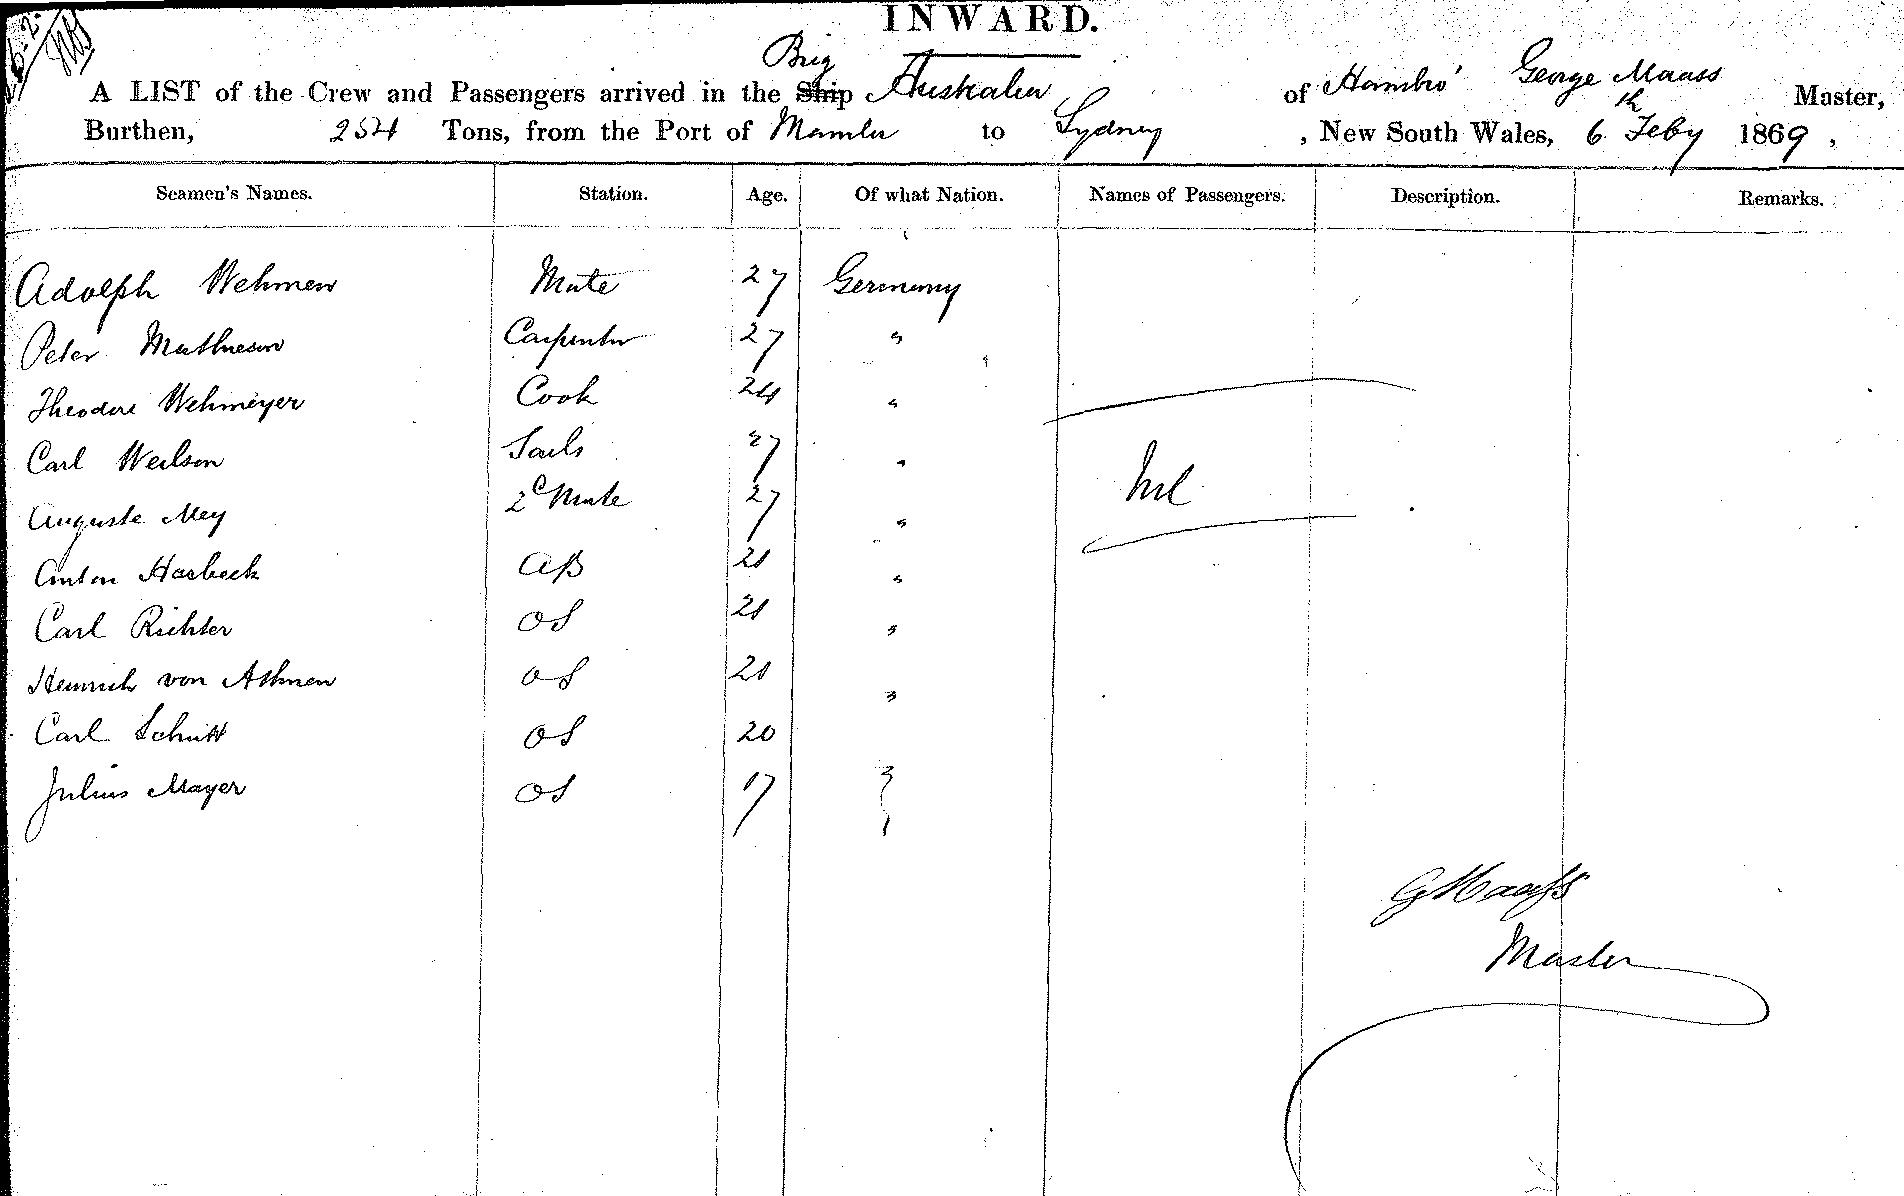 INWARD.
A LIST of the Crew and Passengers arrived in the Ship Brig Australia of Hambro' George Maass Master,
Burthen, 254 Tons, from the Port of Manila to Sydney, New South Wales, 6th Feby 1869,
Seamen's Names. Station. Age. Of what Nation. Names of Passengers. Description. Remarks.
Adolph Wehmen Mate 27 Germany
Peter Mathieson Carpenter 27 "
Theodore Wehmeyer Cook 24 "
Carl Weilson Sails 27 "
Auguste Mey 2d Mate 27 " Nil
Anton Hasbeck AB 21 "
Carl Richter OS 21 "
Heinrich von Ashmen OS 21 "
Carl Schutt OS 20
Julius Mayer OS 17 "
G Maass
Master